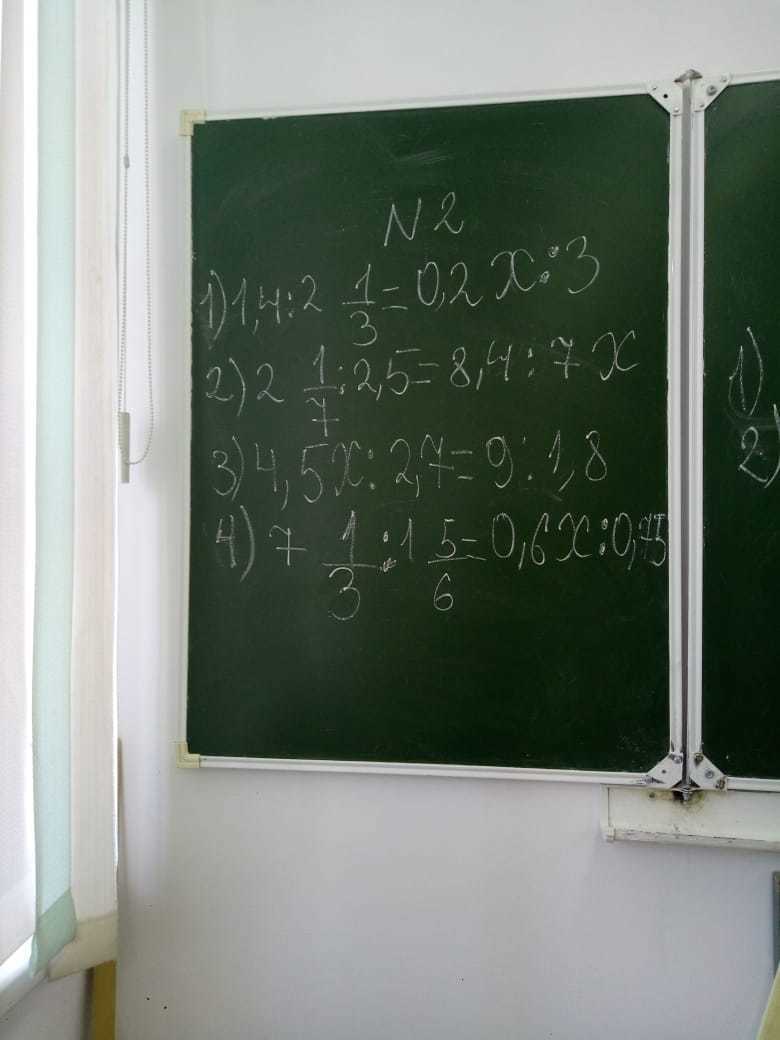 N2
1) 1,4 : 2 1/3 = 0,2x : 3
2) 2 1/7 : 2,5 = 8,4 : 7x
3) 4,5x : 2,7 = 9 : 1,8
4) 7 1/3 : 1 5/6 = 0,6x : 0,75
1)
2)